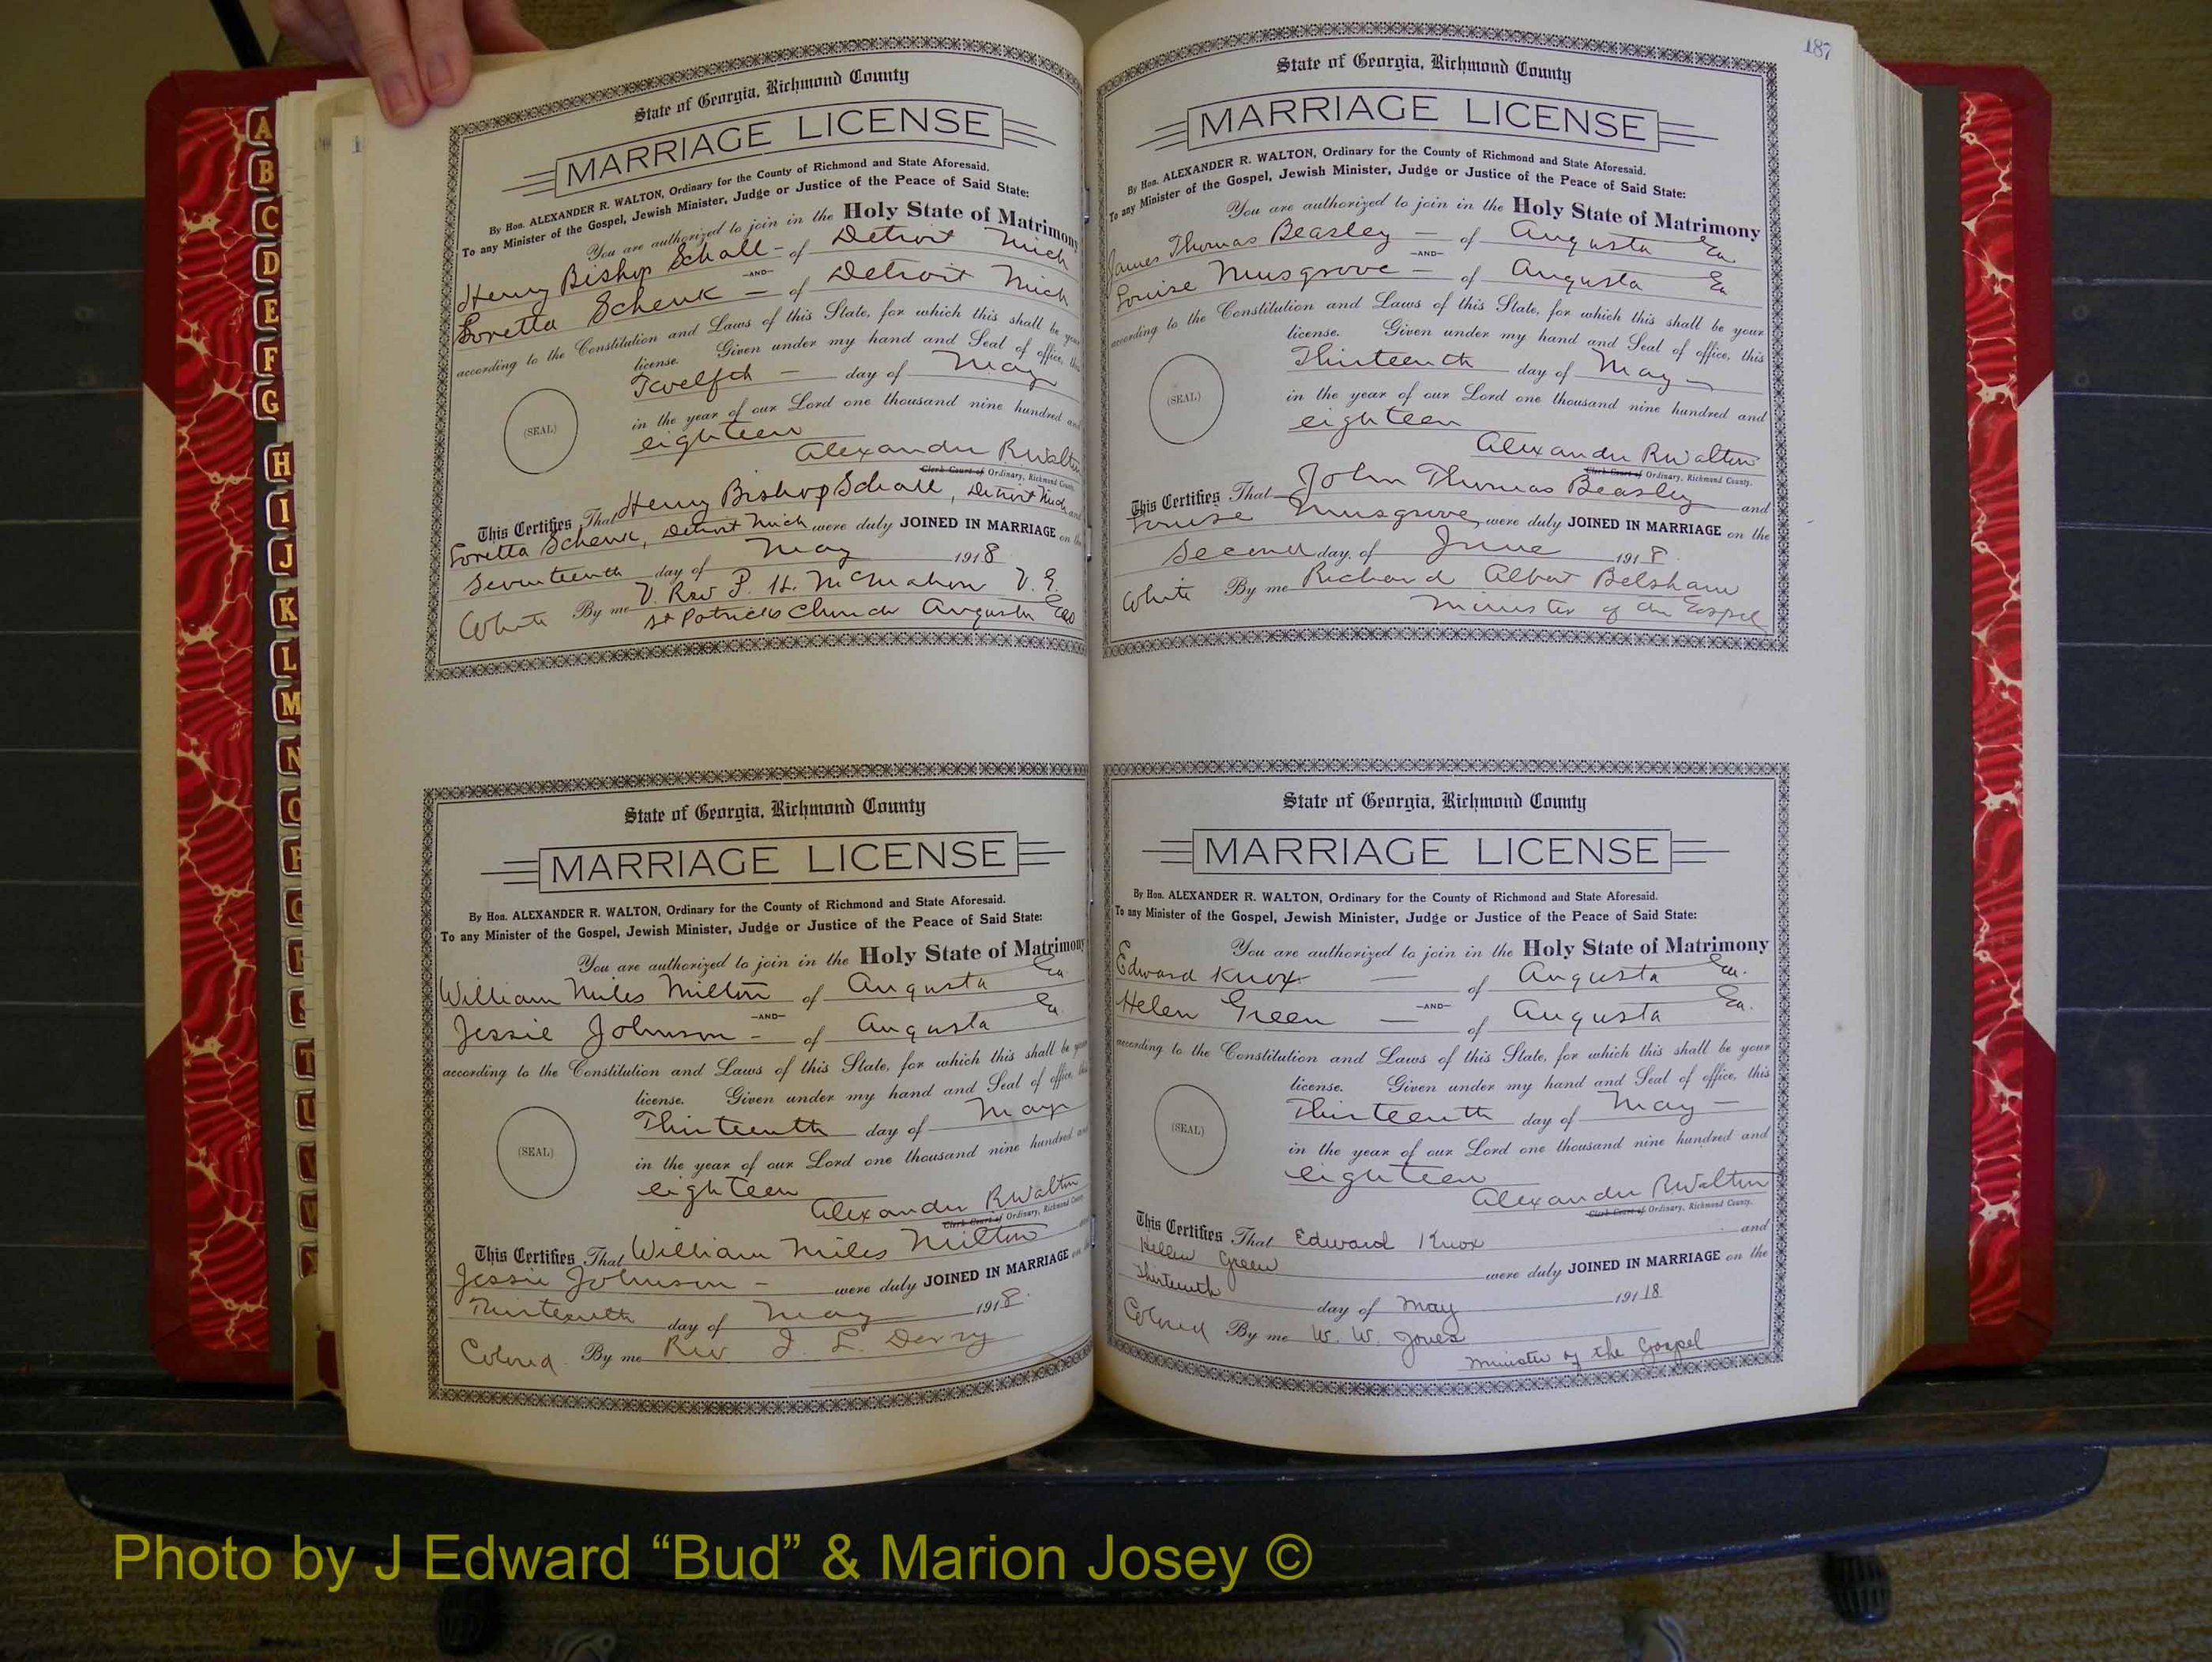 A
B
C
D
E
F
G
H
I
J
K
L
M
N
O
P
Q
R
S
T
U
V
W
State of Georgia, Richmond County
MARRIAGE LICENSE
By Hon. ALEXANDER R. WALTON, Ordinary for the County of Richmond and State Aforesaid.
To any Minister of the Gospel, Jewish Minister, Judge or Justice of the Peace of Said State:
You are authorized to join in the Holy State of Matrimony
Henry Bishop Schall - of Detroit Mich
—AND—
Loretta Schenk — of Detroit Mich
according to the Constitution and Laws of this State, for which this shall be your
license. Given under my hand and Seal of office, this
Twelfth — day of May
(SEAL)
in the year of our Lord one thousand nine hundred and
eighteen
Alexander R Walton
Clerk Court of Ordinary, Richmond County.
This Certifies That Henry Bishop Schall, Detroit Mich and
Loretta Schenk, Detroit Mich were duly JOINED IN MARRIAGE on the
Seventeenth day of May 1918
White By me V. Rev P. H. McMahon V. G.
St Patricks Church Augusta
State of Georgia, Richmond County
MARRIAGE LICENSE
By Hon. ALEXANDER R. WALTON, Ordinary for the County of Richmond and State Aforesaid.
To any Minister of the Gospel, Jewish Minister, Judge or Justice of the Peace of Said State:
You are authorized to join in the Holy State of Matrimony
William Miles Milton of Augusta Ga
—AND—
Jessie Johnson - of Augusta Ga.
according to the Constitution and Laws of this State, for which this shall be your
license. Given under my hand and Seal of office, this
Thirteenth day of May
(SEAL)
in the year of our Lord one thousand nine hundred and
eighteen
Alexander R Walton
Clerk Court of Ordinary, Richmond County.
This Certifies That William Miles Milton and
Jessie Johnson - were duly JOINED IN MARRIAGE on the
Thirteenth day of May 1918.
Colored By me Rev. J. L. Derry
187
State of Georgia, Richmond County
MARRIAGE LICENSE
By Hon. ALEXANDER R. WALTON, Ordinary for the County of Richmond and State Aforesaid.
To any Minister of the Gospel, Jewish Minister, Judge or Justice of the Peace of Said State:
You are authorized to join in the Holy State of Matrimony
James Thomas Beasley — of Augusta Ga.
—AND—
Louise Musgrove — of Augusta Ga
according to the Constitution and Laws of this State, for which this shall be your
license. Given under my hand and Seal of office, this
Thirteenth day of May —
(SEAL)
in the year of our Lord one thousand nine hundred and
eighteen
Alexander R Walton
Clerk Court of Ordinary, Richmond County.
This Certifies That John Thomas Beasley and
Louise Musgrove, were duly JOINED IN MARRIAGE on the
Second day of June 1918.
White By me Richard Albert Belsham
Minister of the Gospel
State of Georgia, Richmond County
MARRIAGE LICENSE
By Hon. ALEXANDER R. WALTON, Ordinary for the County of Richmond and State Aforesaid.
To any Minister of the Gospel, Jewish Minister, Judge or Justice of the Peace of Said State:
You are authorized to join in the Holy State of Matrimony
Edward Knox — of Augusta Ga.
—AND—
Helen Green — of Augusta Ga.
according to the Constitution and Laws of this State, for which this shall be your
license. Given under my hand and Seal of office, this
Thirteenth day of May —
(SEAL)
in the year of our Lord one thousand nine hundred and
eighteen
Alexander R Walton
Clerk Court of Ordinary, Richmond County.
This Certifies That Edward Knox and
Hellen Green were duly JOINED IN MARRIAGE on the
Thirteenth day of May 19118
Colored By me W. W. Jones
Minister of the Gospel
Photo by J Edward “Bud” & Marion Josey ©